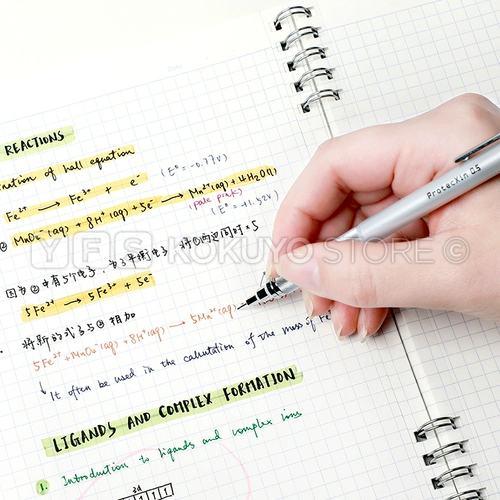 REACTIONS
nation of half equation
Fe²⁺ → Fe³⁺ + e⁻ (E° = -0.77V)
② MnO₄⁻(aq) + 8H⁺(aq) + 5e⁻ → Mn²⁺(aq) + 4H₂O(l)
(pale pink) (E° = +1.52V)
因为②中有5个电子,为了平衡电子,将①两边同时×5
5Fe²⁺ → 5Fe³⁺ + 5e⁻
将新的式子与②相加
5Fe²⁺ + MnO₄⁻(aq) + 8H⁺(aq) → 5Mn²⁺(aq)
↓ It often be used in the calculation of the mass of Fe
LIGANDS AND COMPLEX FORMATION
1. Introduction to ligands and complex ions
3d
ProtecXin 0.5
YFS KOKUYO STORE ©